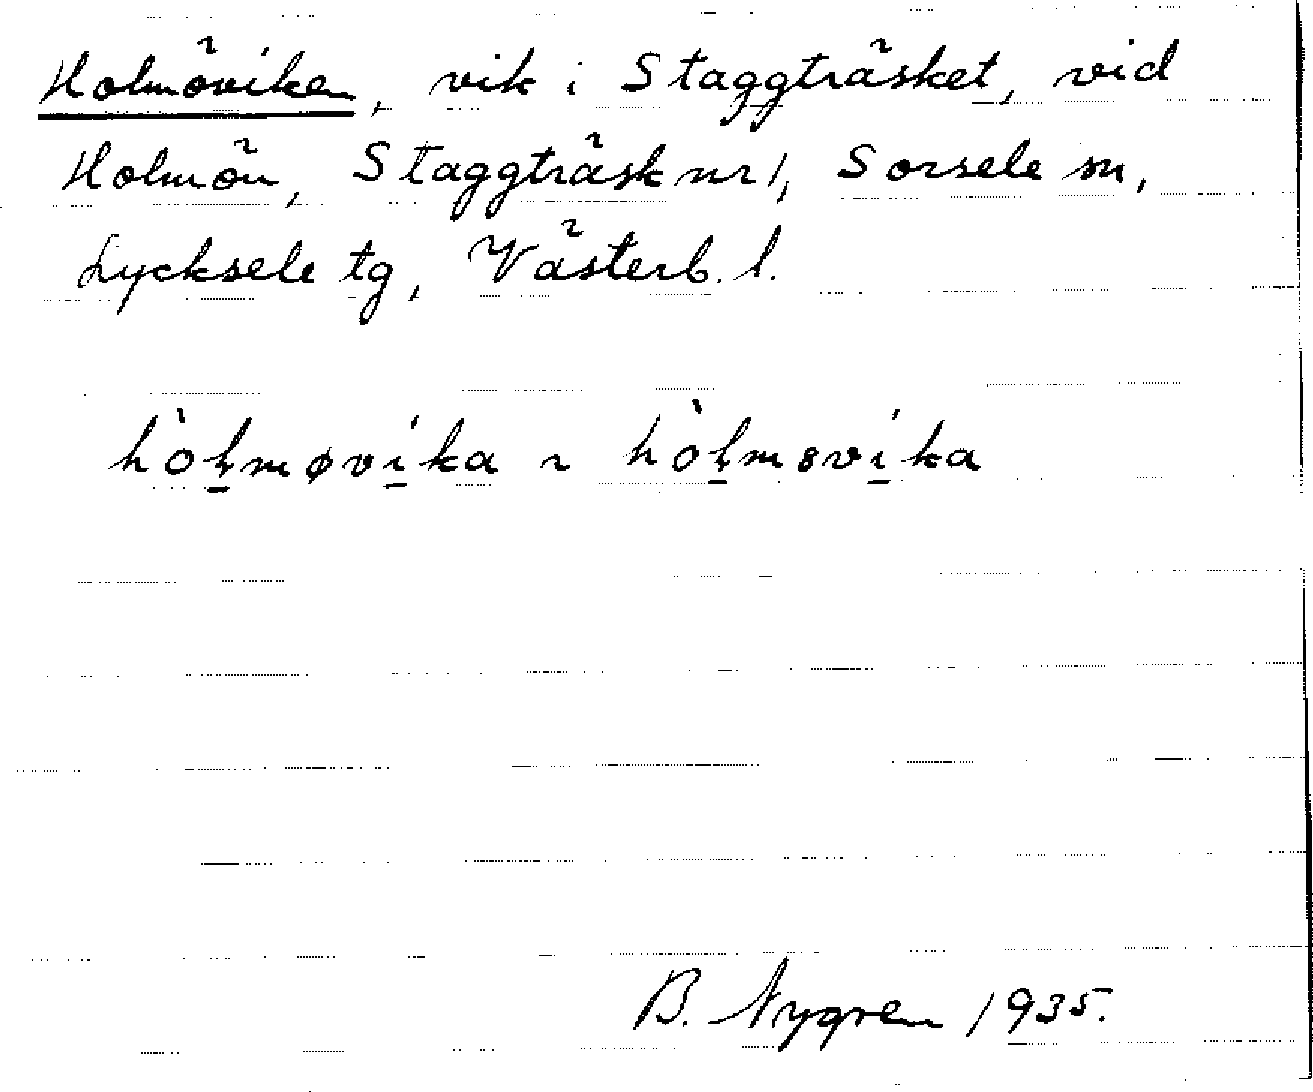 Holmöviken, vik i Staggträsket, vid
Holmön, Staggträsk nr 1, Sorsele sn,
Lycksele tg, Västerb. l.
hòḷmøvíka ~ hòḷmɞvíka
B. Nygren 1935.